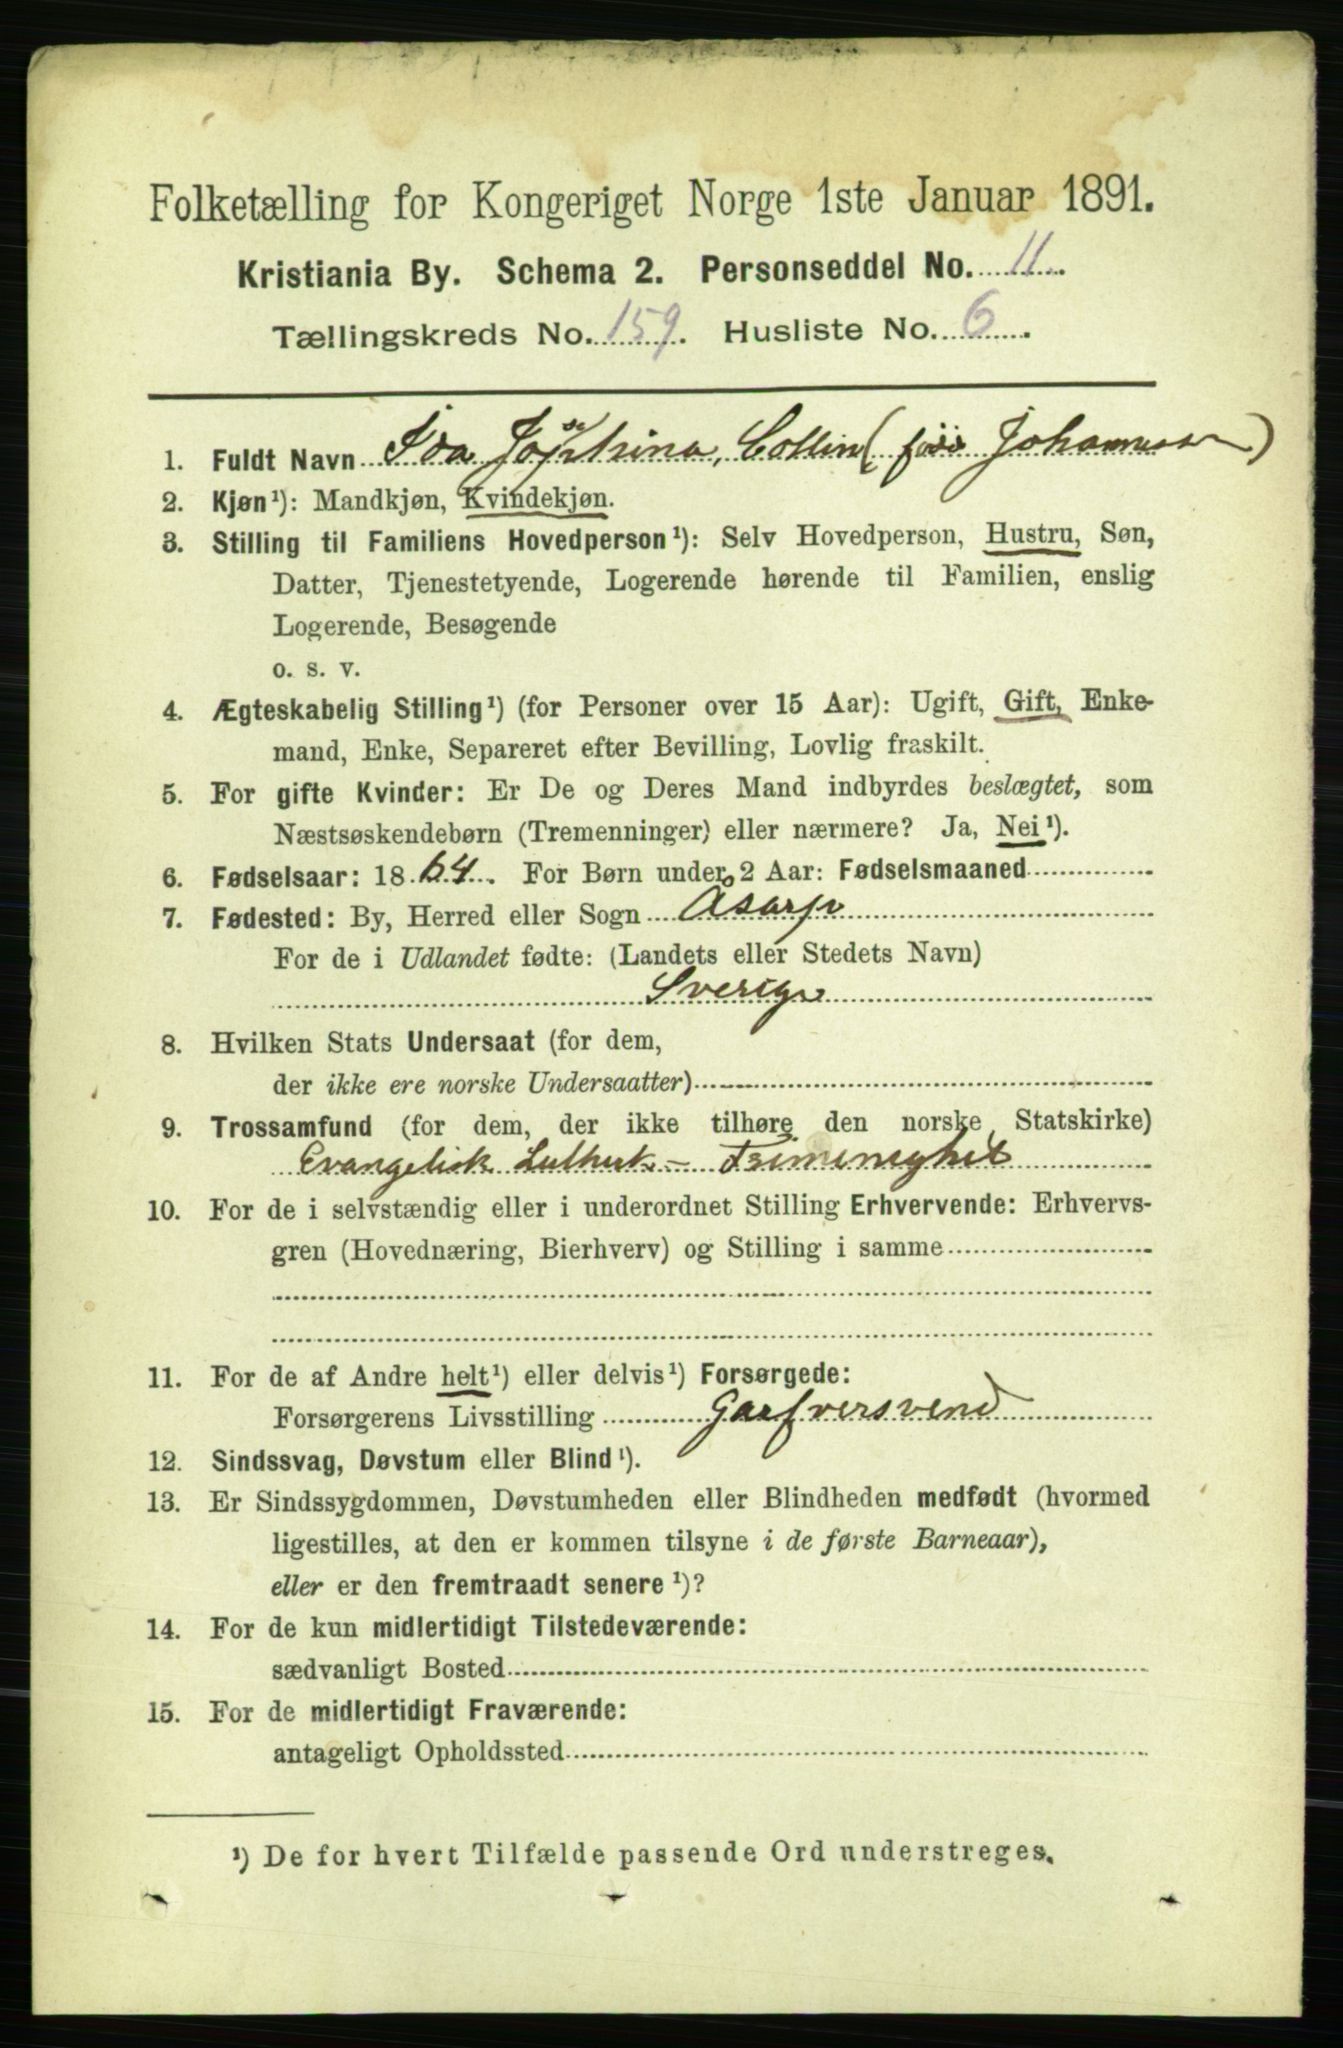 Folketælling for Kongeriget Norge 1ste Januar 1891.
Kristiania By. Schema 2. Personseddel No. 11.
Tællingskreds No. 159. Husliste No. 6.
1. Fuldt Navn Ida Josephina, Collin (født Johannessen)
2. Kjøn¹): Mandkjøn, Kvindekjøn.
3. Stilling til Familiens Hovedperson¹): Selv Hovedperson, Hustru, Søn,
Datter, Tjenestetyende, Logerende hørende til Familien, enslig
Logerende, Besøgende
o. s. v.
4. Ægteskabelig Stilling¹) (for Personer over 15 Aar): Ugift, Gift, Enke-
mand, Enke, Separeret efter Bevilling, Lovlig fraskilt.
5. For gifte Kvinder: Er De og Deres Mand indbyrdes beslægtet, som
Næstsøskendebørn (Tremenninger) eller nærmere? Ja, Nei¹).
6. Fødselsaar: 1864. For Børn under 2 Aar: Fødselsmaaned
7. Fødested: By, Herred eller Sogn Åsarp
For de i Udlandet fødte: (Landets eller Stedets Navn)
Sverige
8. Hvilken Stats Undersaat (for dem,
der ikke ere norske Undersaatter)
9. Trossamfund (for dem, der ikke tilhøre den norske Statskirke)
Evangelisk Luthersk – Frimenighet
10. For de i selvstændig eller i underordnet Stilling Erhvervende: Erhvervs-
gren (Hovednæring, Bierhverv) og Stilling i samme
11. For de af Andre helt¹) eller delvis¹) Forsørgede:
Forsørgerens Livsstilling Garfversvend
12. Sindssvag, Døvstum eller Blind¹).
13. Er Sindssygdommen, Døvstumheden eller Blindheden medfødt (hvormed
ligestilles, at den er kommen tilsyne i de første Barneaar),
eller er den fremtraadt senere¹)?
14. For de kun midlertidigt Tilstedeværende:
sædvanligt Bosted
15. For de midlertidigt Fraværende:
antageligt Opholdssted
¹) De for hvert Tilfælde passende Ord understreges.